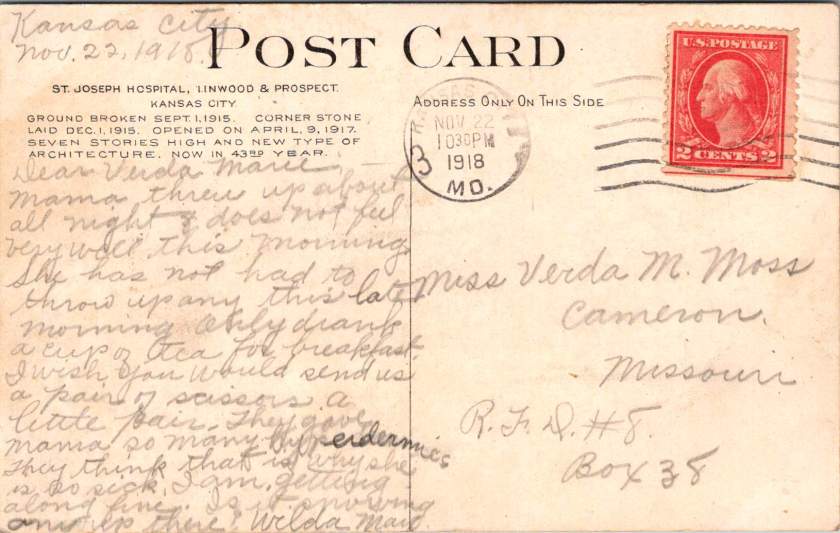 Kansas City
Nov. 22, 1918.
POST CARD
ST. JOSEPH HOSPITAL, LINWOOD & PROSPECT.
KANSAS CITY
GROUND BROKEN SEPT. 1, 1915. CORNER STONE
LAID DEC. 1, 1915. OPENED ON APRIL, 9, 1917.
SEVEN STORIES HIGH AND NEW TYPE OF
ARCHITECTURE. NOW IN 43RD YEAR.
Dear Verda Marie, —
Mama threw up about
all night & does not feel
very well this morning.
She has not had to
throw up any this late
morning Only drank
a cup of tea for breakfast.
I wish you would send us
a pair of scissors a
little pair. They gave
mama so many hypeerdermics
They think that is why she
is so sick. I am getting
along fine. Is it snowing
any up there? Wilda Mae.
ADDRESS ONLY ON THIS SIDE
KANSAS CITY
NOV 22
1030PM
1918
MO.
3
U.S. POSTAGE
2 CENTS 2
Miss Verda M. Moss
Cameron.
Missouri
R.F.D. #8.
Box 38